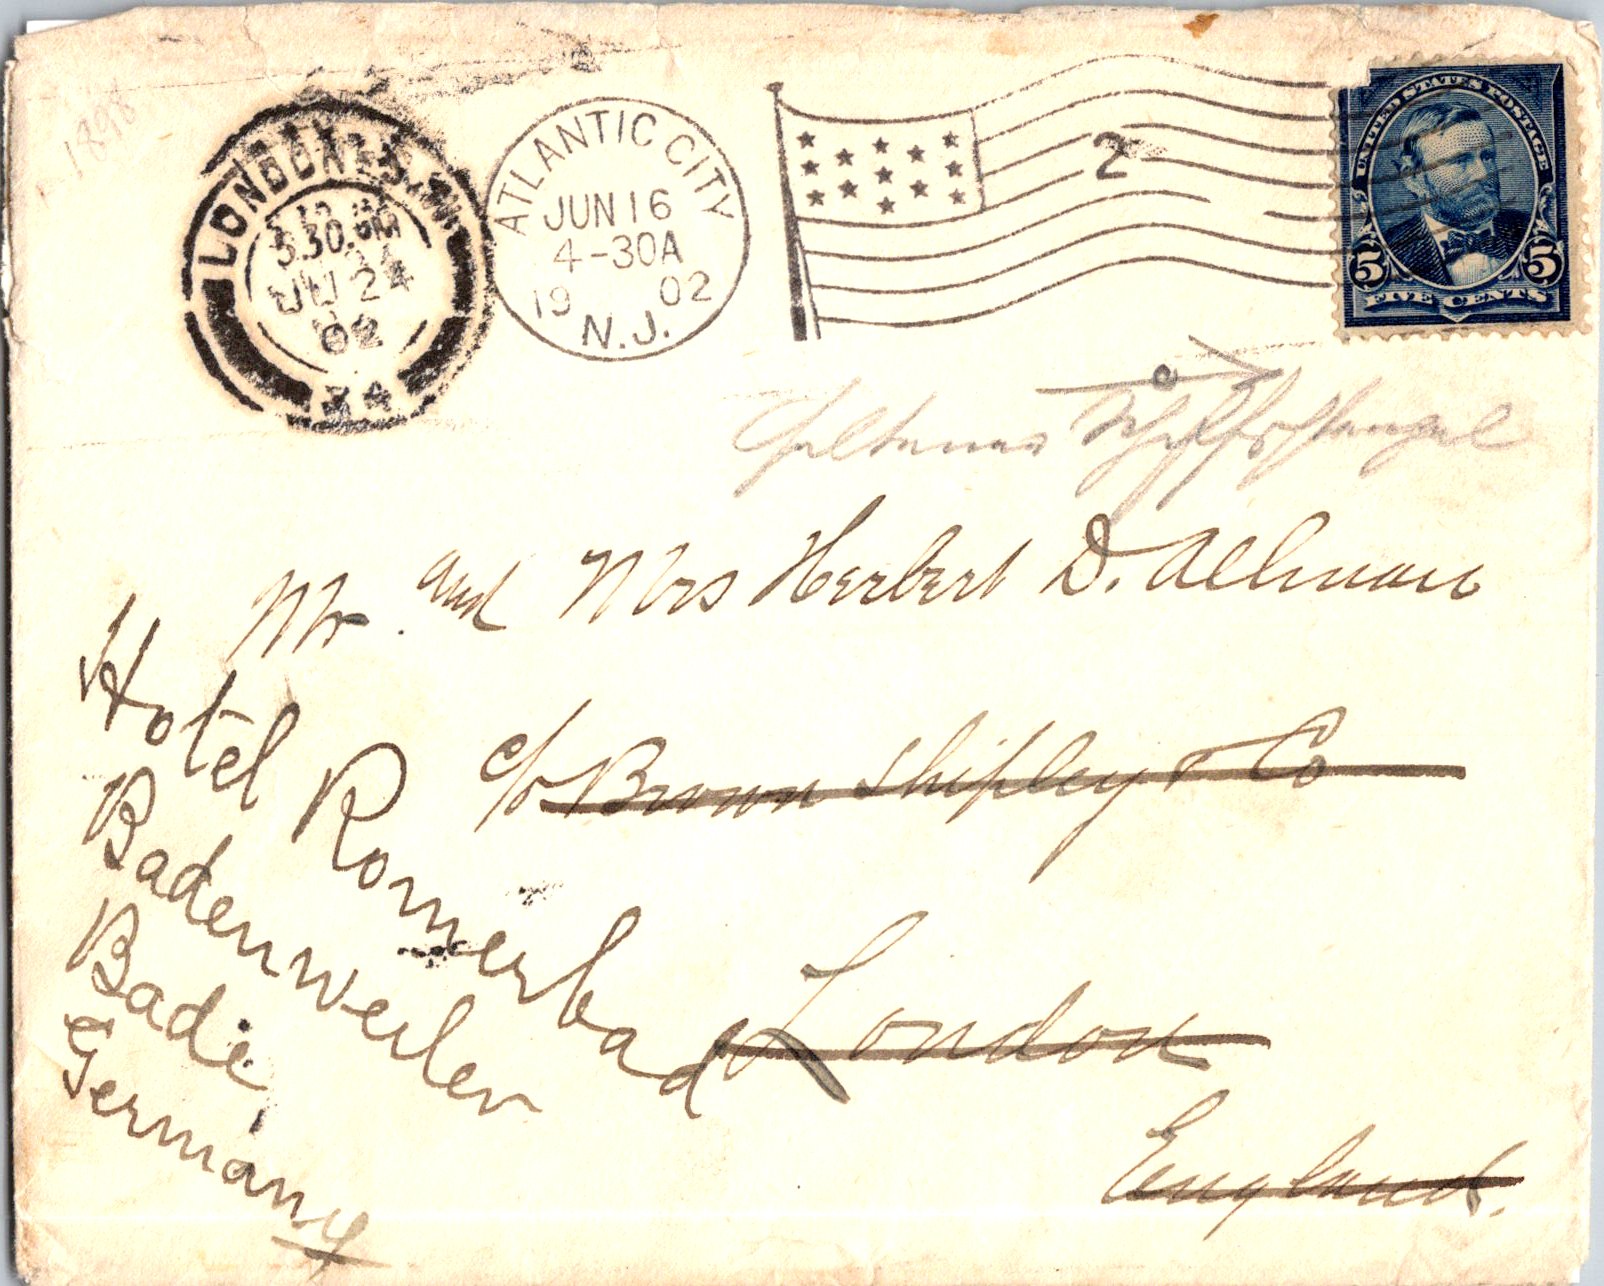 1898
LONDON
3.30 PM
JU 24
02
ATLANTIC CITY
JUN 16
4-30A
19 02
N.J.
2
UNITED STATES POSTAGE
5 5
FIVE CENTS
Mr. and Mrs Herbert D. Allman
c/o Brown Shipley & Co
London
England.
Hotel Romerbad
Badenweiler
Badie
Germany